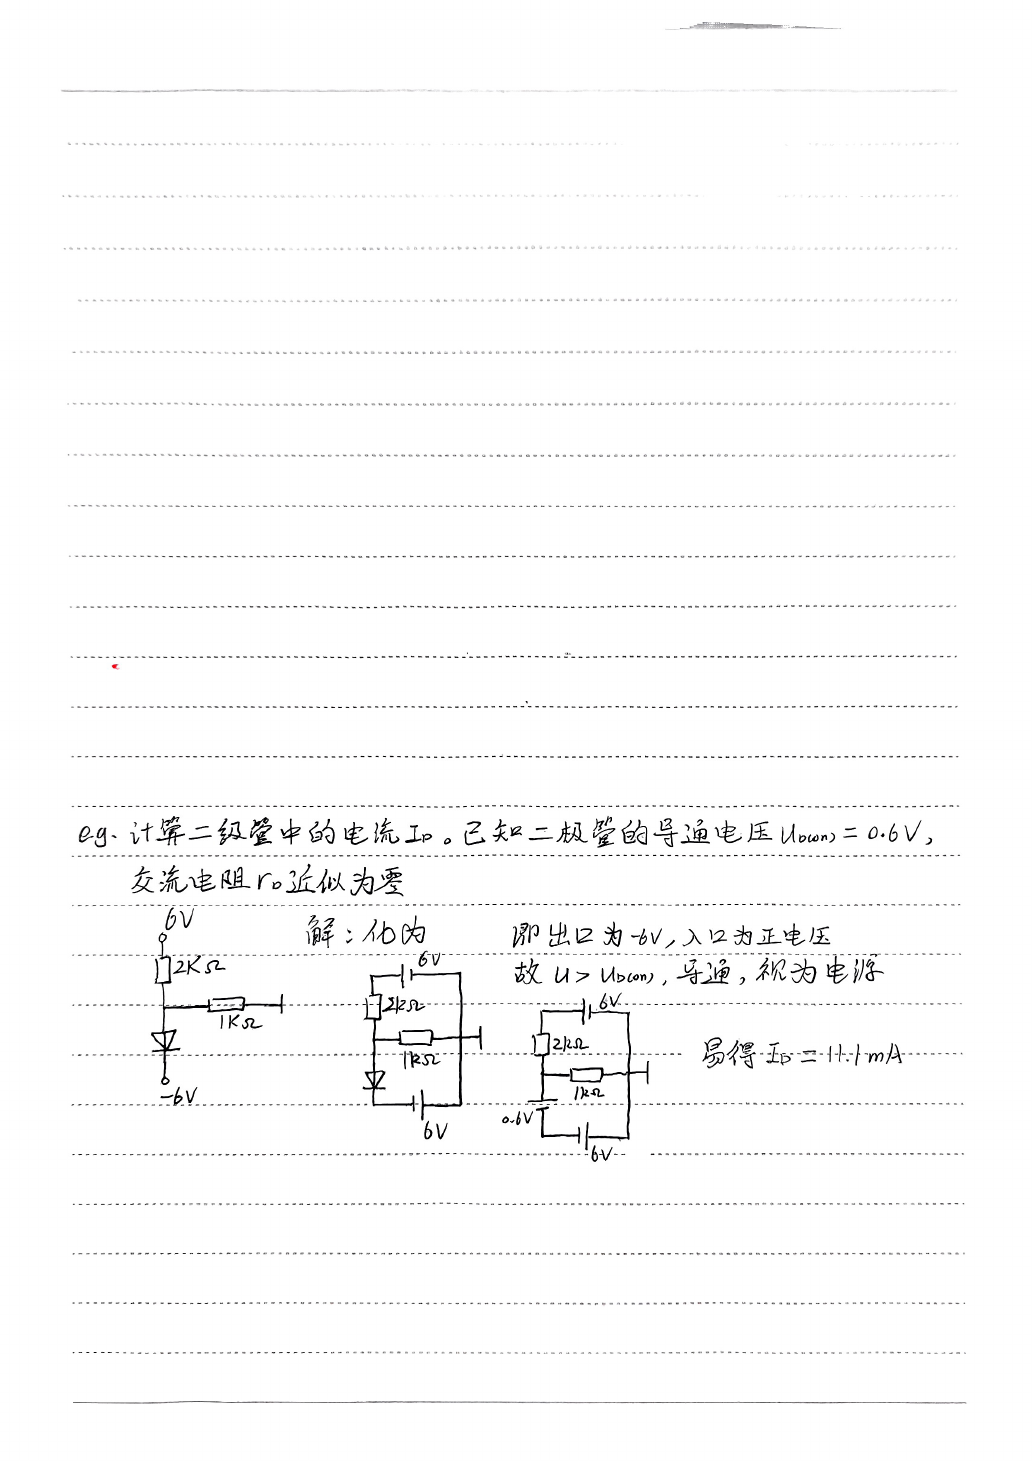 e.g. 计算二级管中的电流 I_D。已知二极管的导通电压 U_D(on) = 0.6V,
交流电阻 r_D 近似为零
6V
2KΩ
1KΩ
-6V
解：化为
6V
2kΩ
1kΩ
6V
即出口为-6V，入口为正电压
故 U > U_D(on)，导通，视为电源
6V
2kΩ
1kΩ
0.6V
6V
易得 I_D = 11.1mA